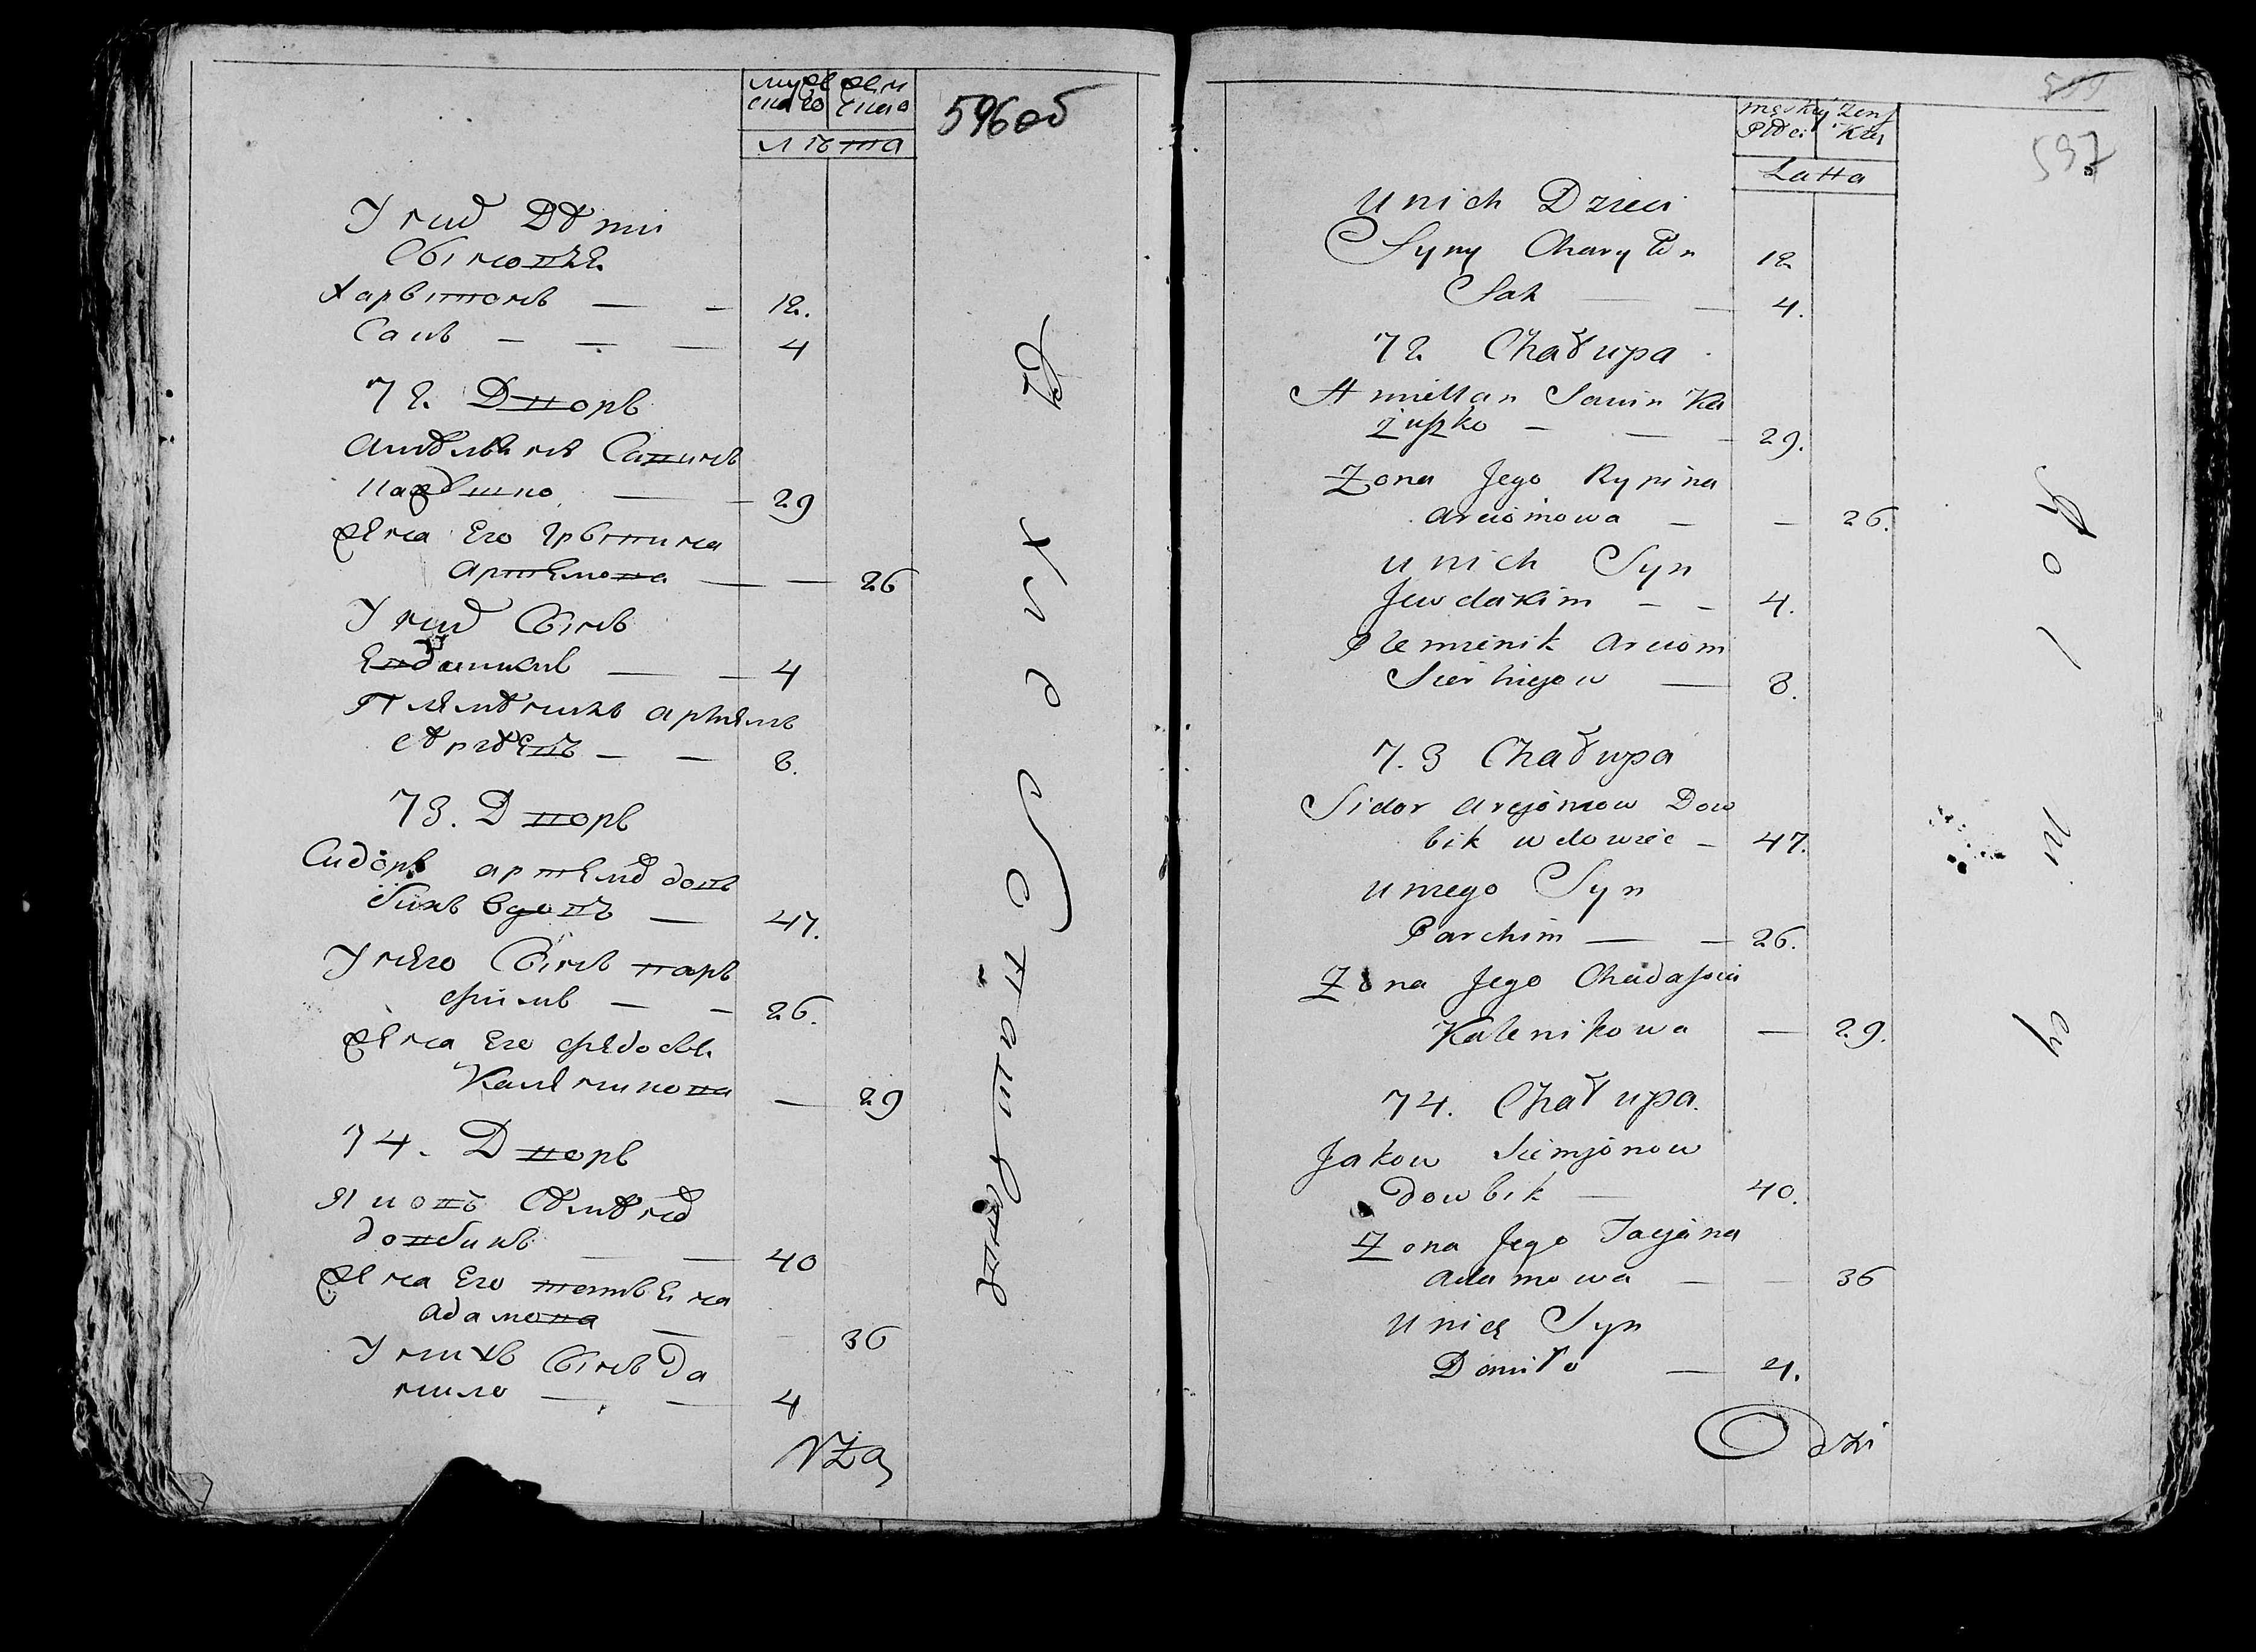 мужс жен
скаго скаго
лѣта
596об
У них Дѣти
Сыновья
Харытонъ — — 12.
Сакъ — — — 4
72. Дворъ
Амѣльянъ Савинъ
кажушко — — 29
жена Его Грыпина
Артемова — — 26
У них Сынъ
Евдакимъ — — 4
Племѣникъ Артемъ
Сѣргѣевъ — — 8.
73. Дворъ
Сидоръ Артемов дов
бикъ вдовъ — 47.
У него Сынъ пар
фимъ — — 26.
жена Его федосья
Калениковна — 29
74. Дворъ
Яковъ Сѣмѣнов
довбикъ — — 40
жена Его татьяна
Адамова — 36
У нихъ Сынъ Да
нило — — 4
męskiej żeńs
Płci kiej
Latta
597
U nich Dzieci
Syny Charyton 12
Sak — — 4.
72 Chałupa
Amiellan Sawin Ka
żuszko — — — 29.
Żona Jego Rypina
Arciomowa — — 26.
U nich Syn
Jewdakim — — 4.
Plemienik Arciom
Sierhiejow — 8.
7.3 Chałupa
Sidor Arcjomow Dow
bik wdowiec — 47.
U niego Syn
Parchim — — 26.
Żona Jego Chwdasia
Kalenikowa — 29.
74. Chałupa.
Jakow Siemjonow
Dowbik — 40.
Żona Jego Tacjana
Adamowa — — 36
U nich Syn
Daniło — 4.